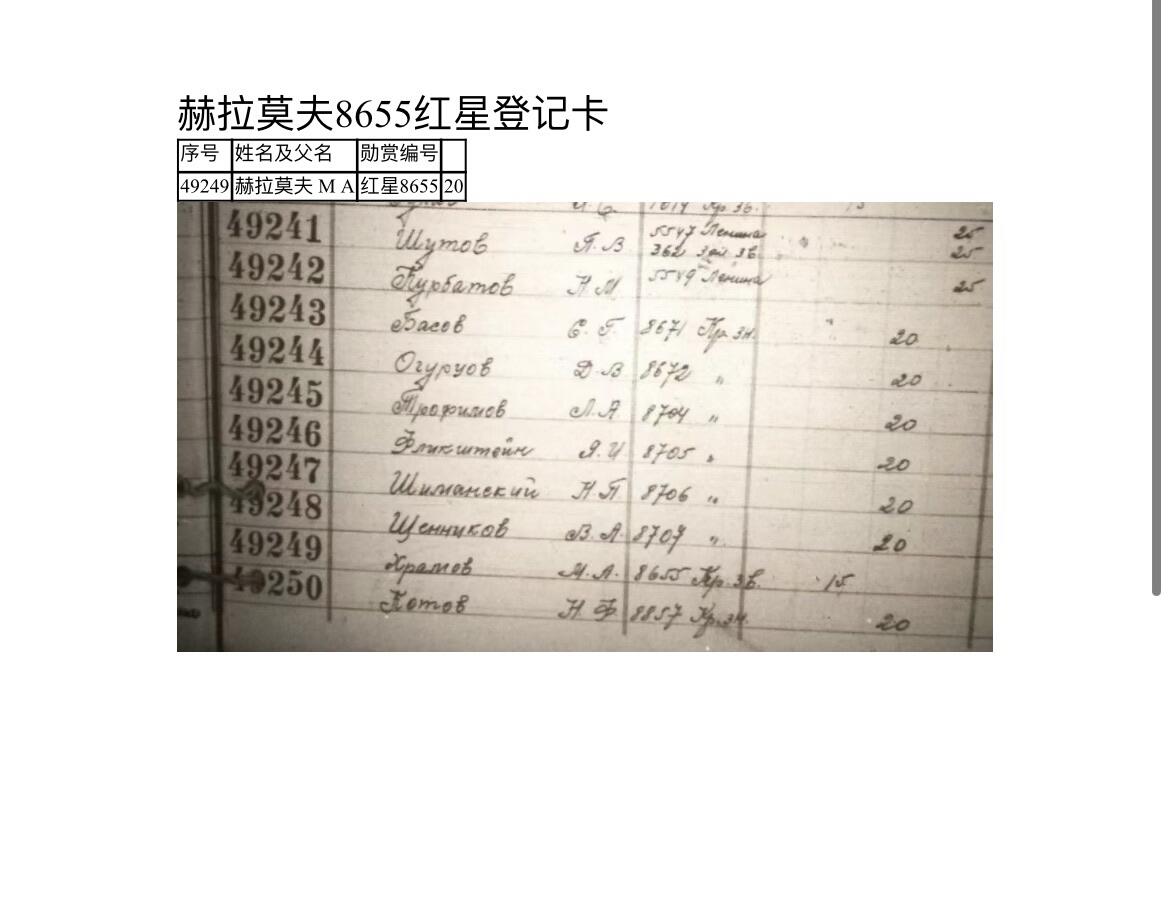 赫拉莫夫8655红星登记卡
序号 姓名及父名 勋赏编号
49249 赫拉莫夫 M A 红星8655 20
1019 Кр зв. 15
49241 Шутов П.В 5547 Ленина 25
362 Зол зв. 25
49242 Курбатов Н М 5549 Ленина 25
49243 Басов С. Г. 8671 Кр зн. 20
49244 Огурцов Д В 8672 " 20
49245 Трофимов Л.А 8704 " 20
49246 Фликштейн Я.И 8705 " 20
49247 Шиманский Н П 8706 " 20
49248 Щенников В. А. 8707 " 20
49249 Храмов М.А. 8655 Кр. зв. 15
49250 Котов Н Ф 8857 Кр. зн. 20